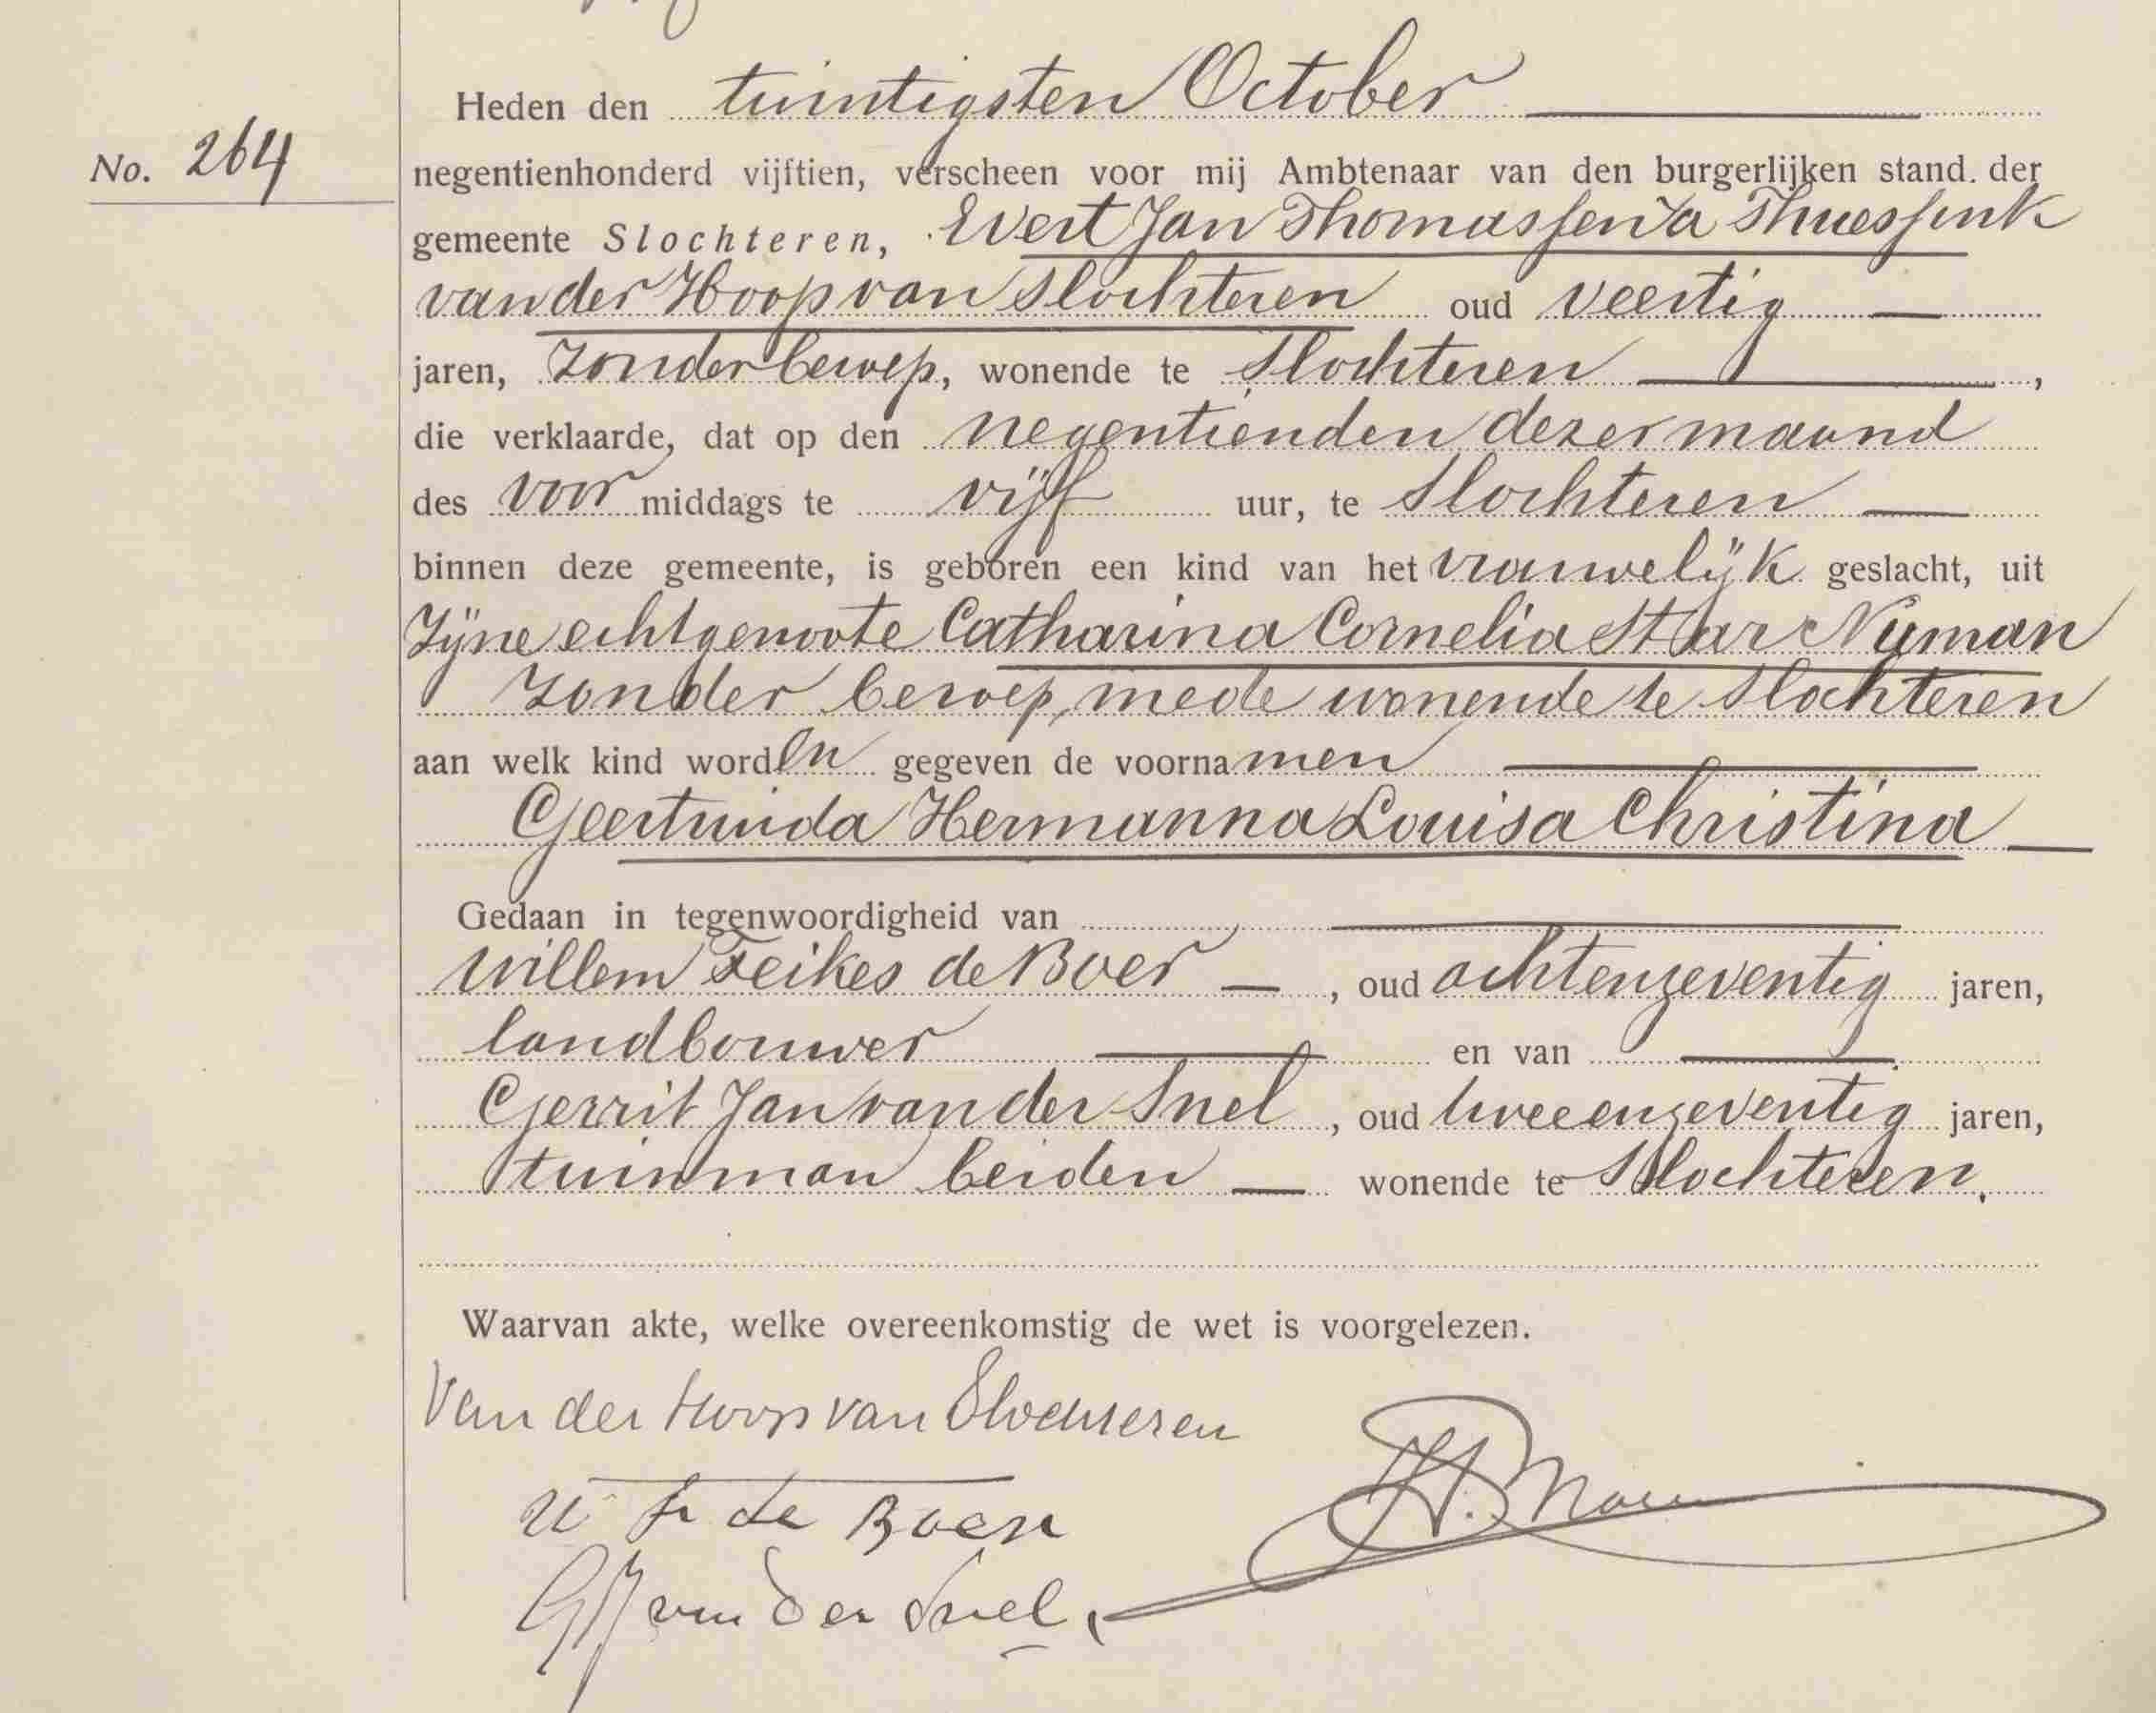 Heden den twintigsten October
No. 264
negentienhonderd vijftien, verscheen voor mij Ambtenaar van den burgerlijken stand. der
gemeente Slochteren, Evert Jan Thomassen à Thuessink
van der Hoop van Slochteren oud veertig
jaren, zonder beroep, wonende te Slochteren,
die verklaarde, dat op den negentienden dezer maand
des voormiddags te vijf uur, te Slochteren
binnen deze gemeente, is geboren een kind van het vrouwelijk geslacht, uit
zijne echtgenoote Catharina Cornelia Star Numan
zonder beroep, mede wonende te Slochteren
aan welk kind worden gegeven de voornamen
Geertruida Hermanna Louisa Christina
Gedaan in tegenwoordigheid van
Willem Feikes de Boer, oud achtenzeventig jaren,
landbouwer en van
Gerrit Jan van der Snel, oud tweeenzeventig jaren,
tuinman beiden wonende te Slochteren.
Waarvan akte, welke overeenkomstig de wet is voorgelezen.
Van der Hoop van Slochteren
W F de Boer
GJ van der Snel